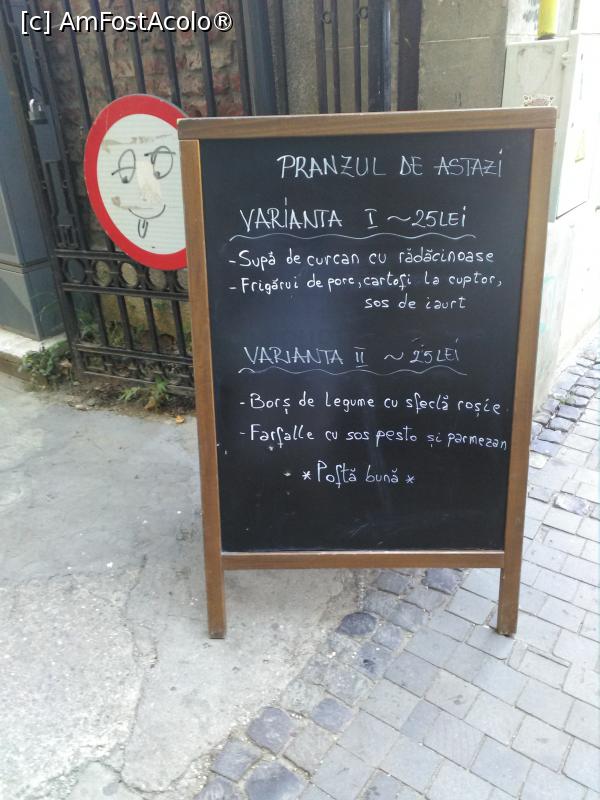 [c] AmFostAcolo®
PRANZUL DE ASTAZI
VARIANTA I ~ 25 LEI
- Supă de curcan cu rădăcinoase
- Frigărui de porc, cartofi la cuptor,
sos de iaurt
VARIANTA II ~ 25 LEI
- Borș de legume cu sfeclă roșie
- Farfalle cu sos pesto și parmezan
* Poftă bună *